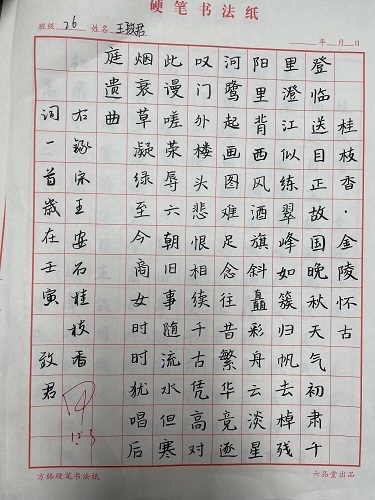 硬笔书法纸
班级 26 姓名 王致君 年 月 日
桂枝香·金陵怀古
登临送目正故国晚秋天气初肃千
里澄江似练翠峰如簇归帆去棹残
阳里背西风酒旗斜矗彩舟云淡星
河鹭起画图难足念往昔繁华竞逐
叹门外楼头悲恨相续千古凭高对
此谩嗟荣辱六朝旧事随流水但寒
烟衰草凝绿至今商女时时犹唱后
庭遗曲
右录宋王安石桂枝香
词一首歲在壬寅 致君
方格硬笔书法纸
六品堂出品